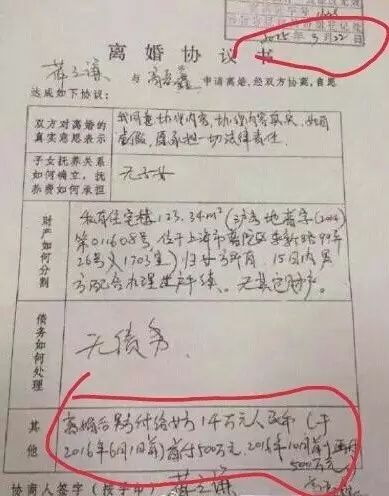 2015年9月22日
离 婚 协 议 书
薛之谦 与 高磊鑫 申请离婚,经双方协商,自愿
达成如下协议:
双方对离婚的
真实意思表示
我同意协议内容,协议内容真实,如有
虚假,愿承担一切法律责任
子女抚养关系
如何确立,抚
养费如何承担
无子女
财产如何分割
123.34m²(沪房地普字(2014)
第011608号,位于上海市普陀区 路99弄
26号 1703室)归女方所有,15日内男
方配合办理过户手续。无其它财产。
债务如何处理
无债务
其他
离婚后男方付给女方1千万元人民币(于
2016年6月1日前)首付500万元,2016年10月前再付
500万元
协商人签字(按手印) 薛之谦